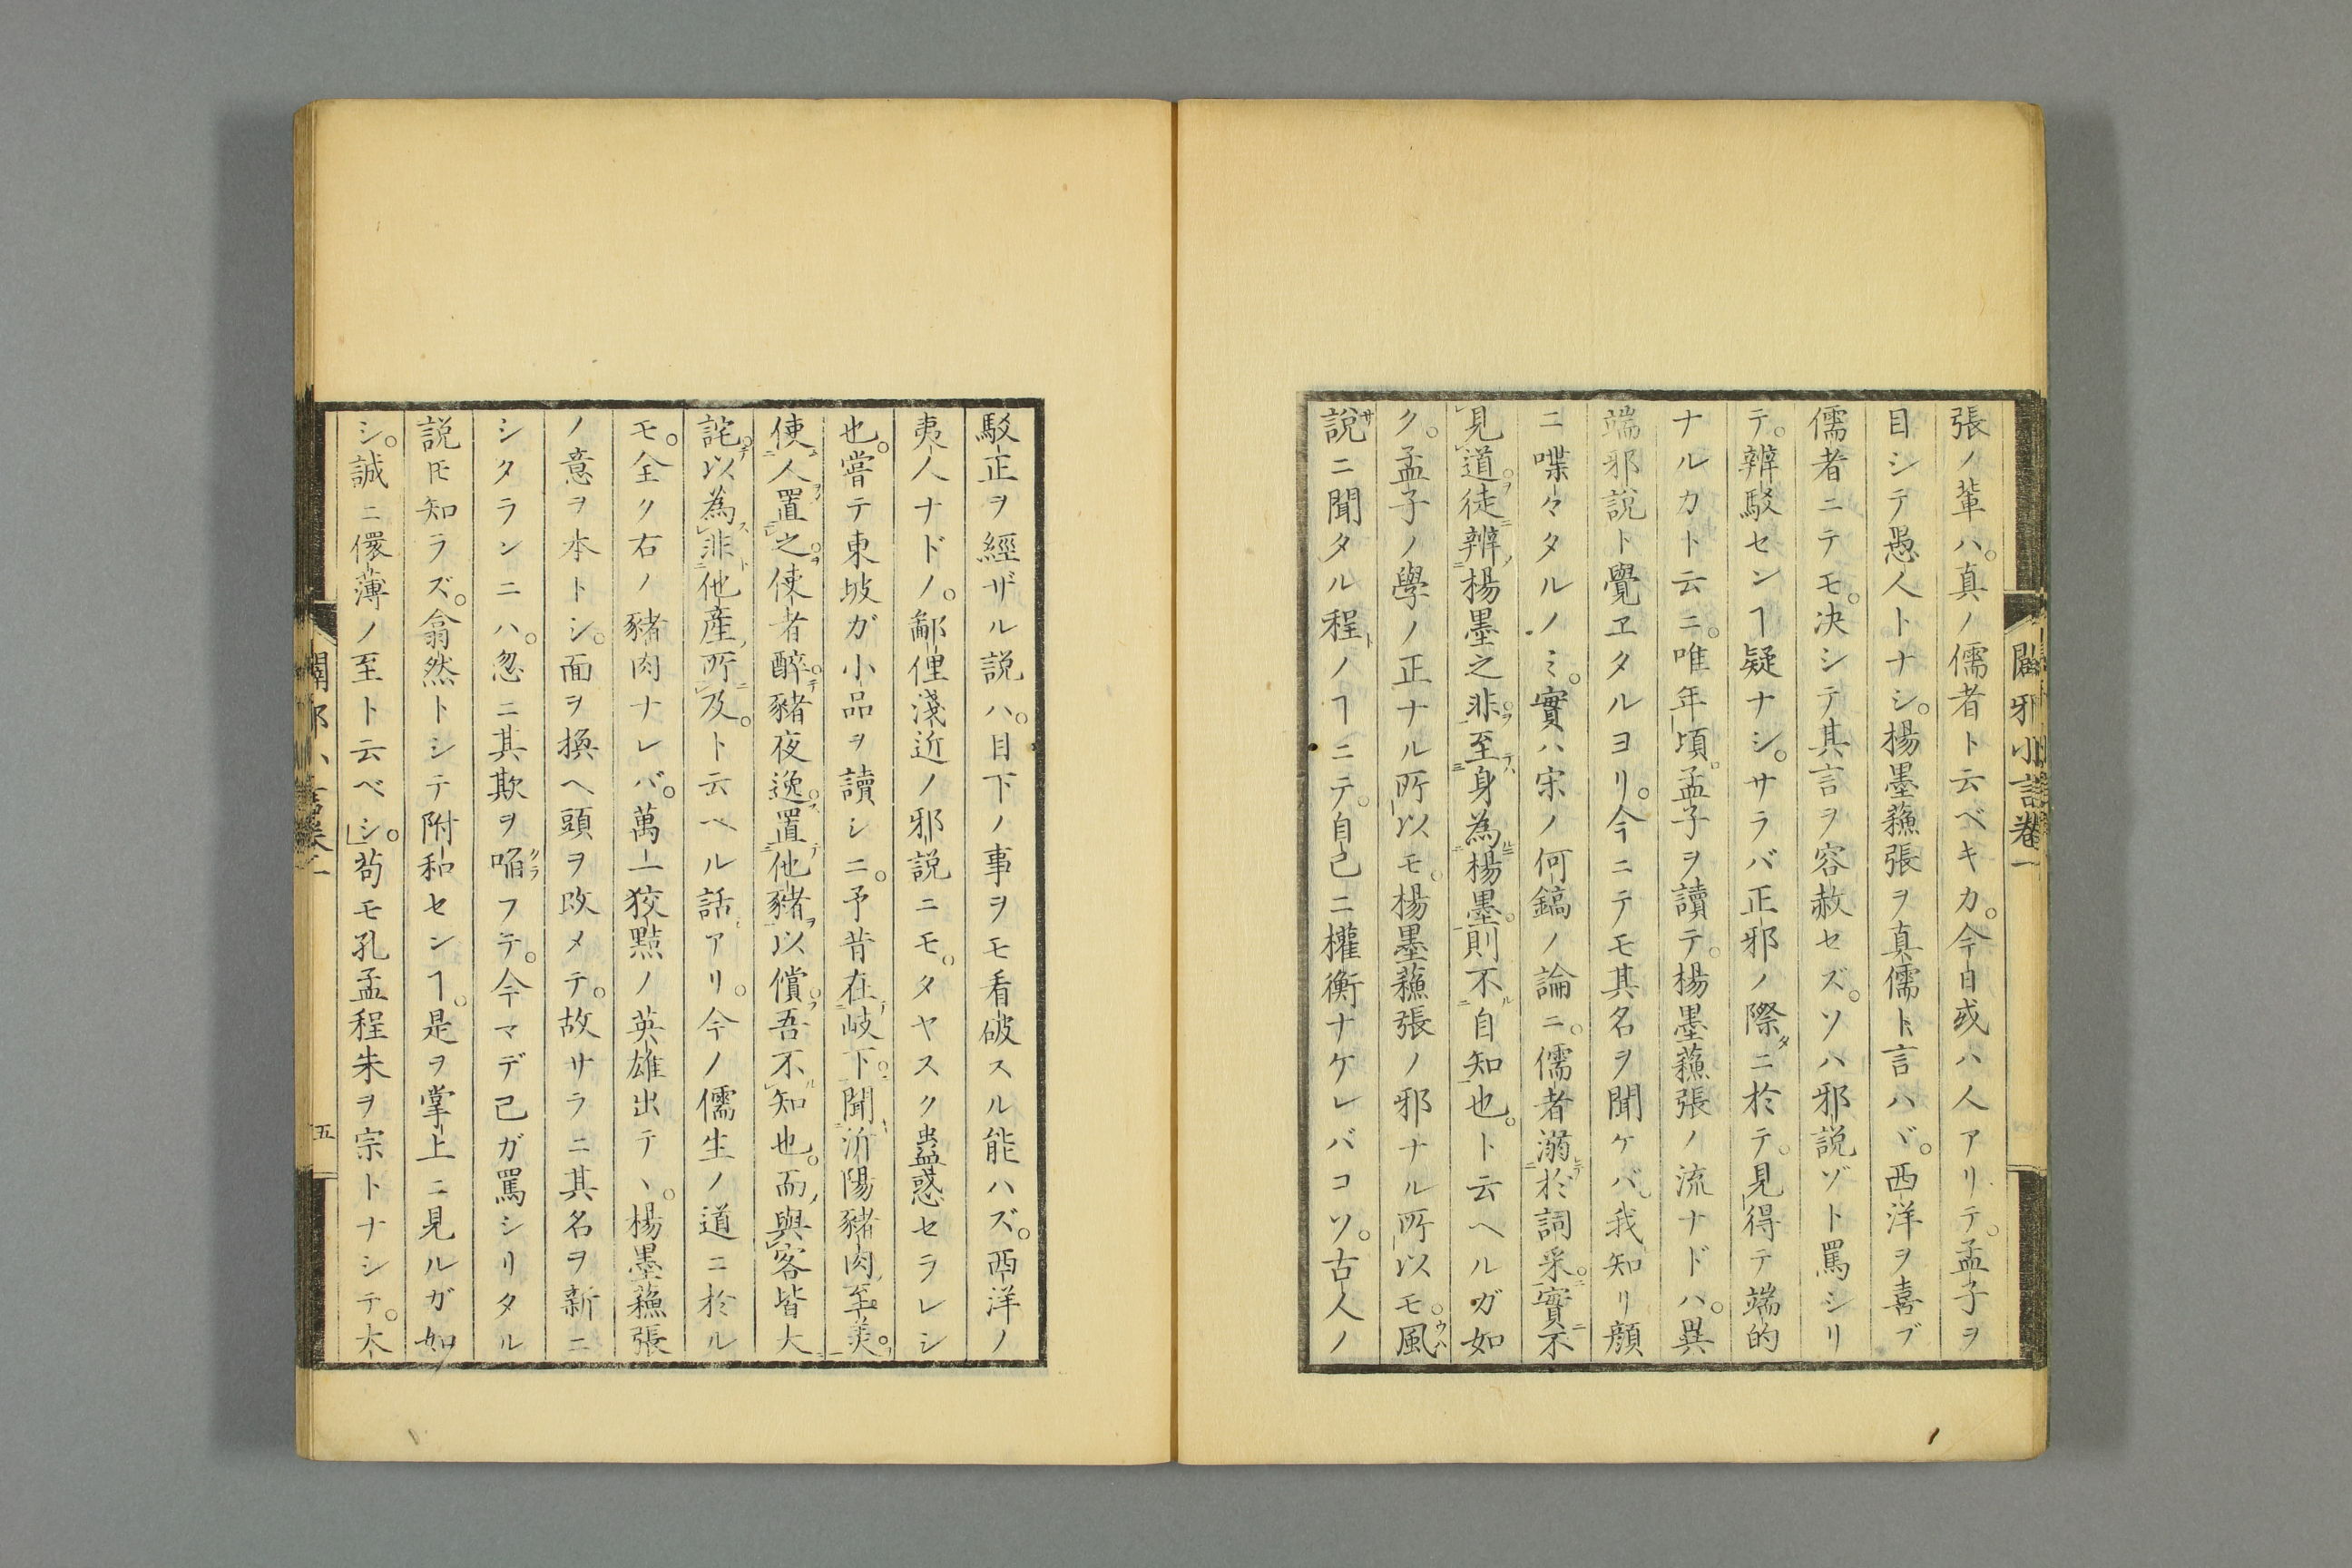 闢邪小言卷一
張ノ輩ハ。真ノ儒者ト云ベキカ。今日或ハ人アリテ。孟子ヲ
目シテ愚人トナシ。楊墨蘓張ヲ真儒ト言ハヾ。西洋ヲ喜ブ
儒者ニテモ。决シテ其言ヲ容赦セズ。ソハ邪説ゾト罵シリ
テ。辨駁センヿ疑ナシ。サラバ正邪ノ際ニ於テ。見得テ端的
ナルカト云ニ。唯年頃孟子ヲ讀テ。楊墨蘓張ノ流ナドハ。異
端邪説ト覺ヱタルヨリ。今ニテモ其名ヲ聞ケバ。我知リ顔
ニ喋々タルノミ。實ハ宋ノ何鎬ノ論ニ。儒者溺於詞采。實不
見道。徒辨楊墨之非。至身為楊墨。則不自知也。ト云ヘルガ如
ク。孟子ノ學ノ正ナル所以モ。楊墨蘓張ノ邪ナル所以モ。風
説ニ聞タル程ノヿニテ。自己ニ權衡ナケレバコソ。古人ノ
駁正ヲ經ザル説ハ。目下ノ事ヲモ看破スル能ハズ。西洋ノ
夷人ナドノ。鄙俚淺近ノ邪説ニモ。タヤスク蠱惑セラレシ
也。嘗テ東坡ガ小品ヲ讀シニ。予昔在岐下。聞沂陽豬肉至美。
使人置之。使者醉。豬夜逸。置他豬以償。吾不知也。而與客皆大
詫。以為非他産所及。ト云ヘル話アリ。今ノ儒生ノ道ニ於ル
モ。全ク右ノ豬肉ナレバ。萬一狡黠ノ英雄出テヽ。楊墨蘓張
ノ意ヲ本トシ。面ヲ換ヘ頭ヲ改メテ。故サラニ其名ヲ新ニ
シタランニハ。忽ニ其欺ヲ啗フテ。今マデ己ガ罵シリタル
説𪜈知ラズ。翕然トシテ附和センヿ。是ヲ掌上ニ見ルガ如
シ。誠ニ儇薄ノ至ト云ベシ。苟モ孔孟程朱ヲ宗トナシテ。太
五